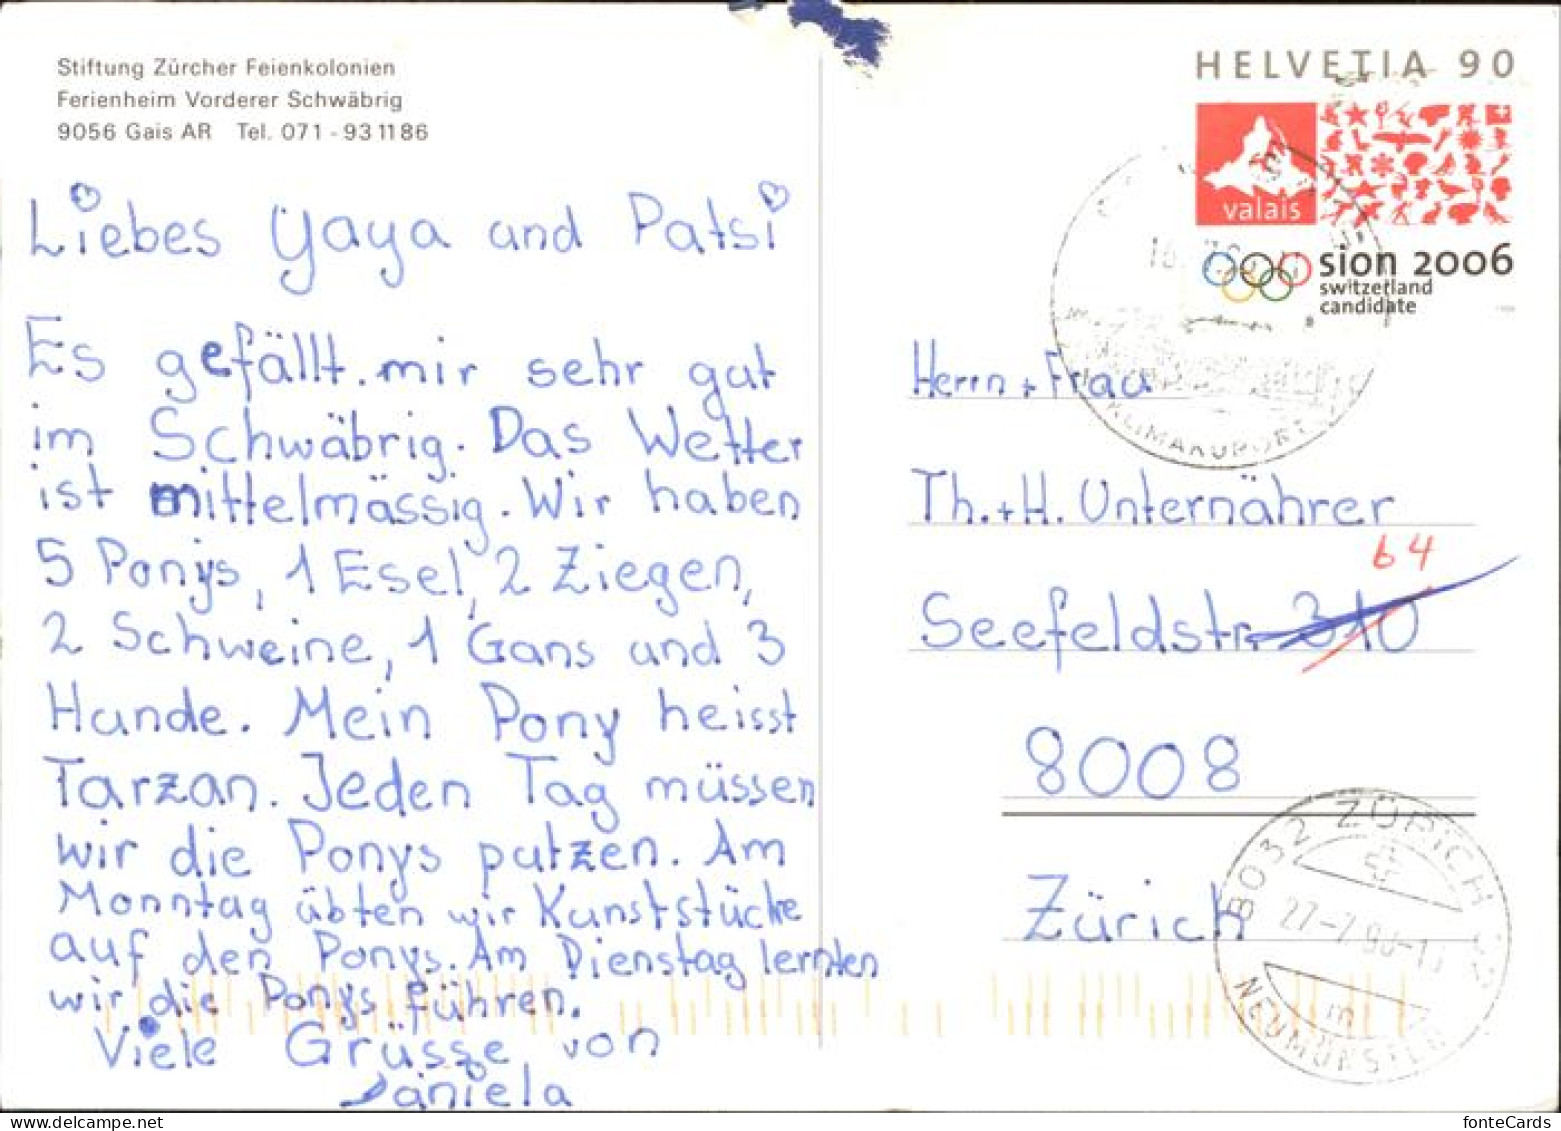 Stiftung Zürcher Feienkolonien
Ferienheim Vorderer Schwäbrig
9056 Gais AR Tel. 071 - 93 11 86
Liebes Yaya und Patsi
Es gefällt mir sehr gut
im Schwäbrig. Das Wetter
ist mittelmässig. Wir haben
5 Ponys, 1 Esel, 2 Ziegen,
2 Schweine, 1 Gans und 3
Hunde. Mein Pony heisst
Tarzan. Jeden Tag müssen
wir die Ponys putzen. Am
Monntag übten wir Kunststücke
auf den Ponys. Am Dienstag lernten
wir die Ponys führen.
Viele Grüsse von
Daniela
HELVETIA 90
valais
sion 2006
switzerland
candidate
KLIMAKURORT
Herrn + Frau
Th. + H. Unternährer
64
Seefeldstr. 310
8008
Zürich
8032 ZÜRICH 32
27-7.98-1
m
NEUMÜNSTER
fonteCards